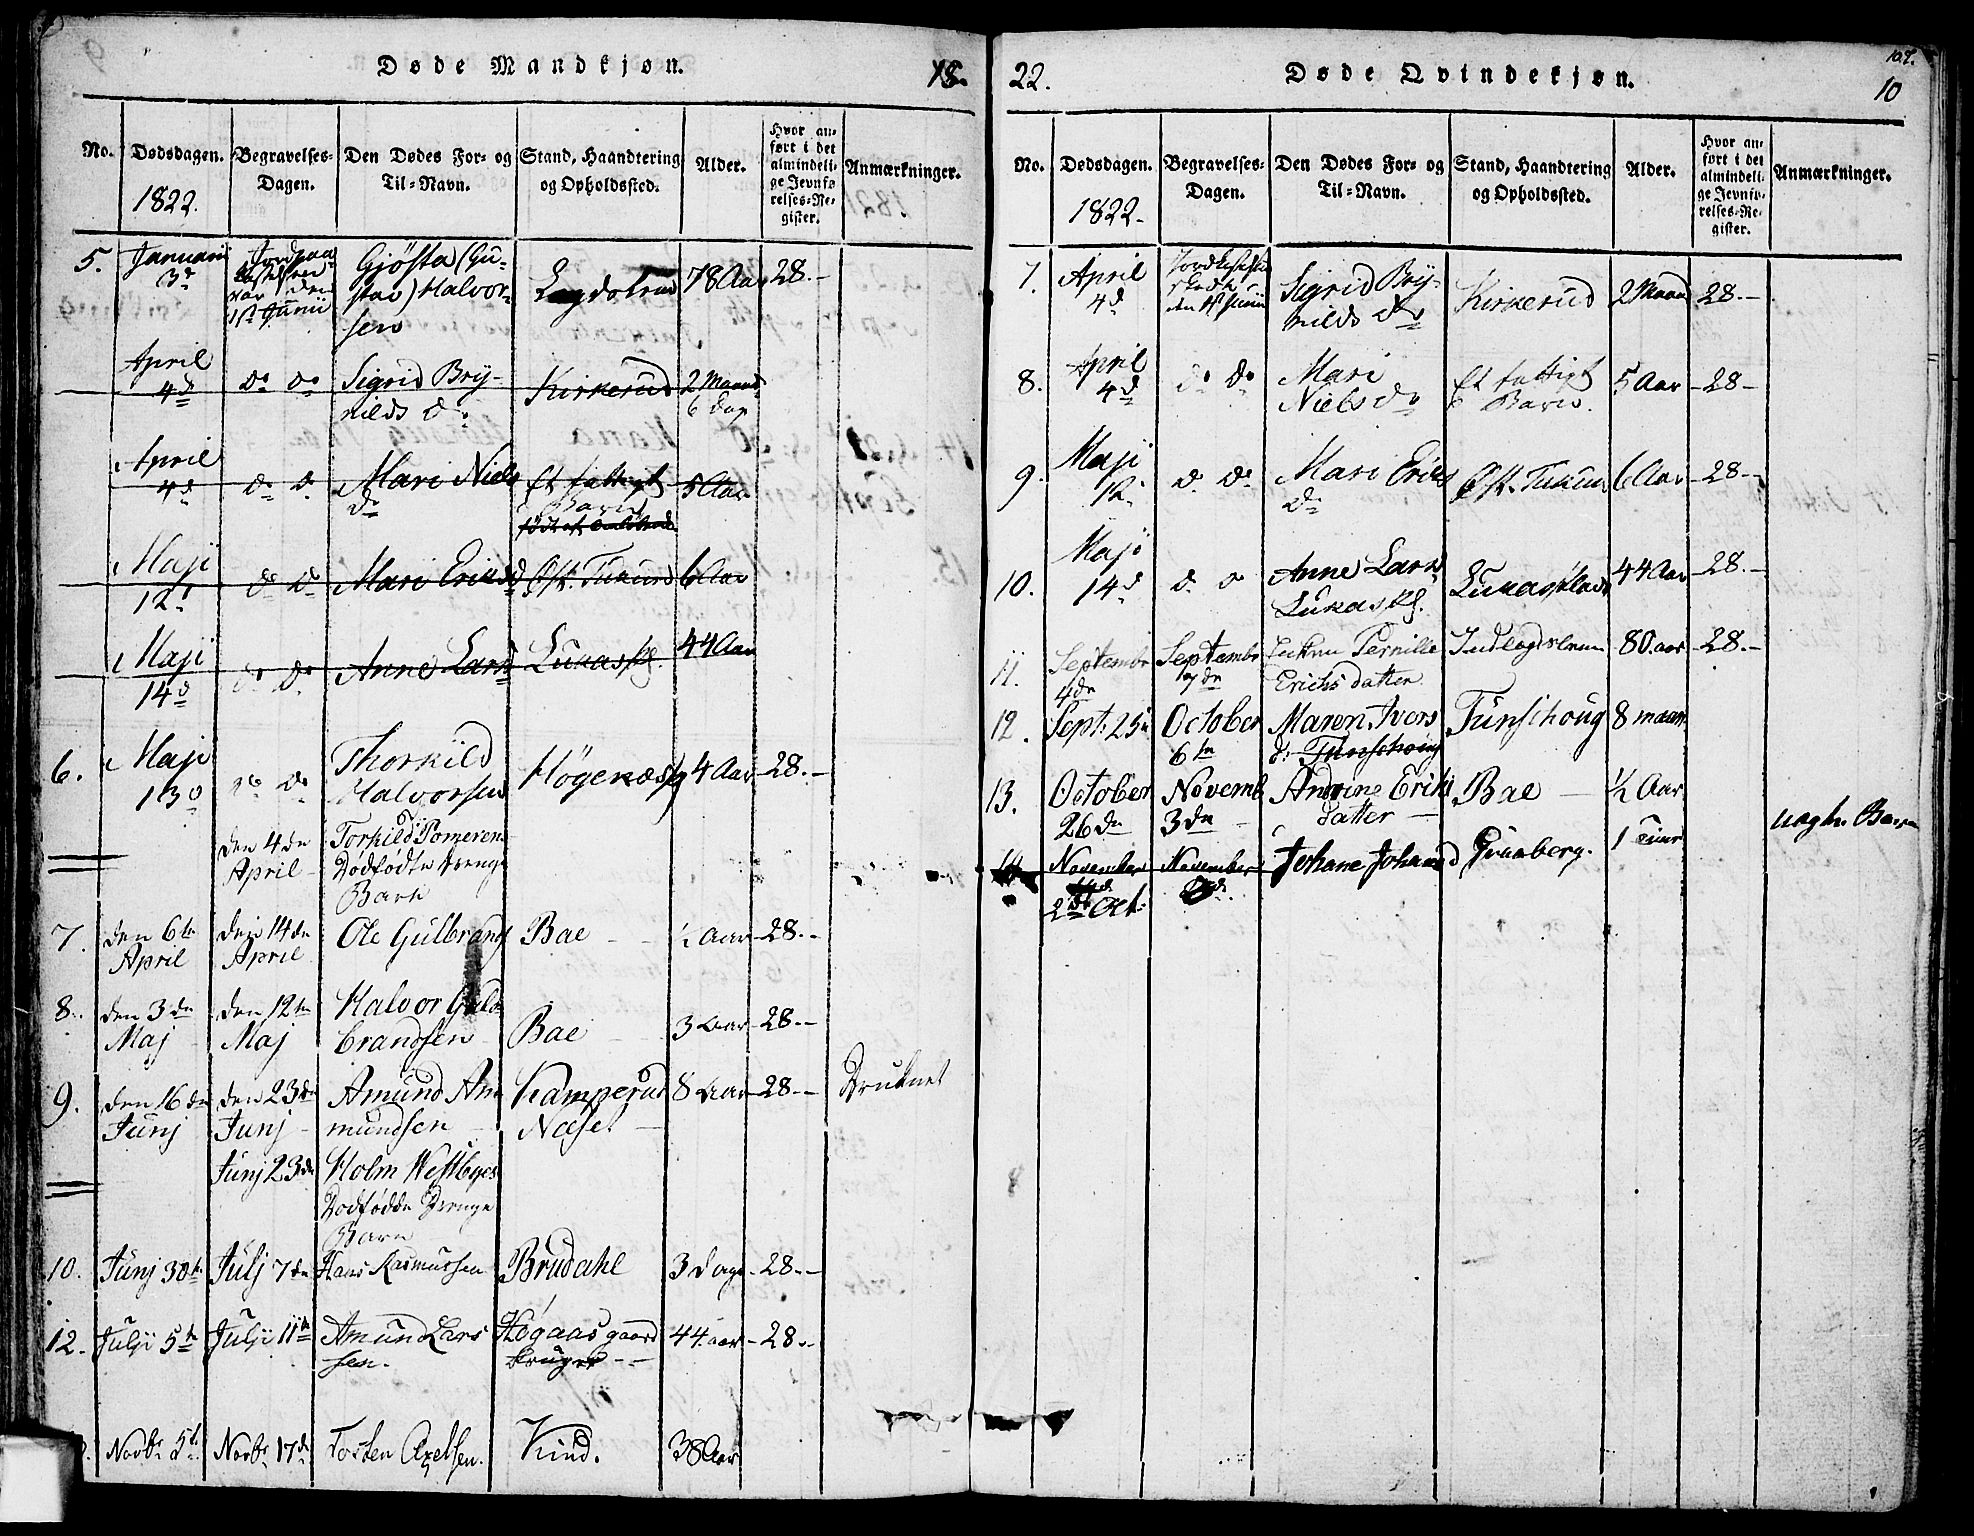 Døde Mandkjøn.
18
No.
Dødsdagen.
1822.
Begravelses-
Dagen.
Den Dødes For- og
Til-Navn.
Stand, Haandtering
og Opholdssted.
Alder.
Hvor an-
ført i det
almindeli-
ge Jevnfø-
relses-Re-
gister.
Anmærkninger.
5. Januarii
3d
Gjösta (Gu-
stav) Halvor-
sen
78 Aar 28.-
April
4d
do do Sigrid Bry-
nilds Dr
Kirkerud 2 Maand
6 Dag
April
4d
do do Mari Niels
Dr
Et fattigt
Barn
5 Aar
Maji
12d
do do Mari Eriksd Øst. Tukun 6 Aar
Maji
14d
do do Anne Larsd Lukaspl. 44 Aar
6. Maji
13d
do do Thorkild
Halvorsen
4 Aar 28.-
den 4de
April
Torkild Pomerens
Dödfödte Drenge
Barn
7. den 6te
April
den 14de
April
Ole Gulbrands Bae ½ Aar 28.-
8. den 3de
Maj
den 12te
Maj
Halvor Guld
brandsen
Bae 3 Aar 28.-
9. den 16de
Junj
den 23de
Junj
Amund Am
mundsen
Kamperud
Næset
8 Aar 28.- Druknet
Junj 23de Holm Westbyes
Dodfødde Drenge
Barn
10. Junj 30te Julj 7de Hans Rasmussen Brudahl 3 Dage 28.-
12. Julji 5te Julji 11te Amund Lars
sen.
Högaas gaard
bruger
44 aar 28.-
Novbr 5te Novbr 17de Tosten Axelsen. Kind. 38 Aar
22.
Døde Qvindekjøn.
102.
10
No.
Dødsdagen.
1822.
Begravelses-
Dagen.
Den Dødes For- og
Til-Navn.
Stand, Haandtering
og Opholdssted.
Alder.
Hvor an-
ført i det
almindeli-
ge Jevnfø-
relses-Re-
gister.
Anmærkninger.
7. April
4d
Sigrid Bry-
nilds Dr
Kirkerud 2 Maand 28.-
8. April
4d
do do Mari
Niels Dr
Et fattigt
Barn.
5 Aar 28-
9. Maji
12.
do do Mari Eriks
Dr
Øst. Tukun 6 Aar 28.-
10. Maji
14d
do do Anne Larsd
Lukaspl.
44 Aar 28.-
11. Septembr
4de
Septembr
7de
Enken Pernille
Erichs datter
80 aar 28.-
12. Sept: 25de October
6te
Maren Ivers
dr Funschoug
Funschoug 8 maan
13. October
26de
Novemb
3de
Andrine Eriks
datter
Bae ½ Aar
uægte Barn
14 November
2d Oct:
November Johane Johansd Graaberg. 1 Time